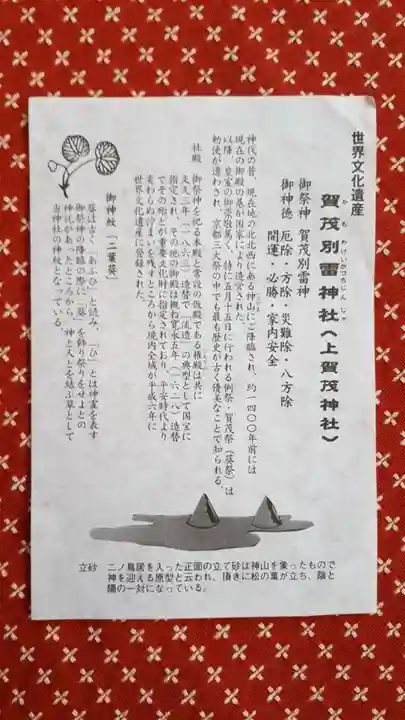 世界文化遺産
かもわけいかづちじんじゃ
賀茂別雷神社(上賀茂神社)
御祭神 賀茂別雷神
御神徳 厄除・方除・災難除・八方除
開運・必勝・家内安全
神代の昔、現在地の北北西にある神山にご降臨され、約一四〇〇年前には
現在の御殿の基が国家により造営された。
以降、皇室の御崇敬篤く、特に五月十五日に行われる例祭・賀茂祭(葵祭)は
勅使が遣わされ、京都三大祭の中でも最も歴史が古く優美なことで知られる。
社殿 御祭神を祀る本殿と常設の仮殿である権殿は共に
文久三年(一八六三)造替で「流造」の典型として国宝に
指定され、その他の御殿は概ね寛永五年(一六二八)造替
でその殆どが重要文化財に指定されており、平安時代より
変わらぬ佇まいを残すところから境内全域が平成六年に
世界文化遺産に登録された。
御神紋「二葉葵」
葵は古く「あふひ」と読み、「ひ」とは神霊を表す
御祭神の降臨の際に「葵」を飾り祭りをせよとの
神託があったところから、神と人とを結ぶ草として
当神社の神紋となっている。
立砂 二ノ鳥居を入った正面の立て砂は神山を象ったもので
神を迎える原型と云われ、頂きに松の葉が立ち、陰と
陽の一対になっている。